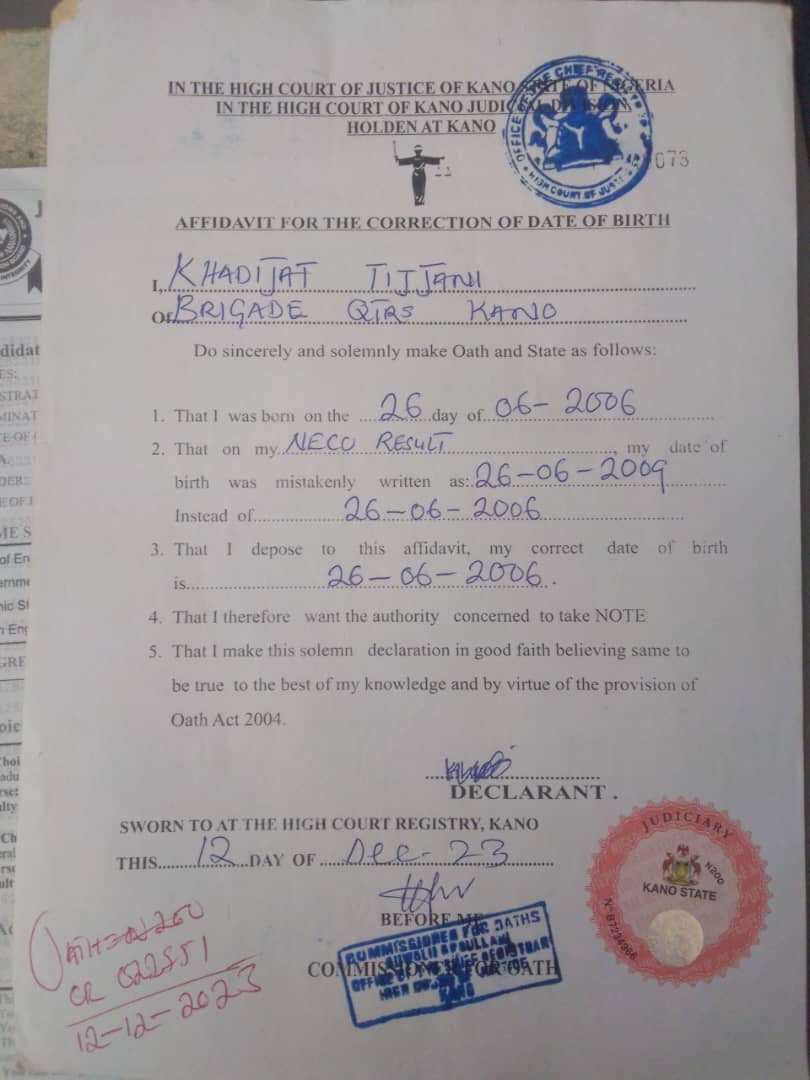 IN THE HIGH COURT OF JUSTICE OF KANO STATE OF NIGERIA
IN THE HIGH COURT OF KANO JUDICIAL DIVISION
HOLDEN AT KANO
OFFICE OF THE CHIEF REGISTRAR
HIGH COURT OF JUSTICE
AFFIDAVIT FOR THE CORRECTION OF DATE OF BIRTH
I, KHADIJAT TIJJANI
Of BRIGADE QTRS KANO
Do sincerely and solemnly make Oath and State as follows:
1. That I was born on the 26 day of 06-2006
2. That on my NECO RESULT, my date of
birth was mistakenly written as: 26-06-2009
Instead of 26-06-2006
3. That I depose to this affidavit, my correct date of birth
is 26-06-2006.
4. That I therefore want the authority concerned to take NOTE
5. That I make this solemn declaration in good faith believing same to
be true to the best of my knowledge and by virtue of the provision of
Oath Act 2004.
DECLARANT.
SWORN TO AT THE HIGH COURT REGISTRY, KANO
THIS 12 DAY OF Dec-23
BEFORE ME
COMMISSIONER FOR OATH
COMMISSIONER FOR OATHS
KANO
JUDICIARY
KANO STATE
N200
12-12-2023